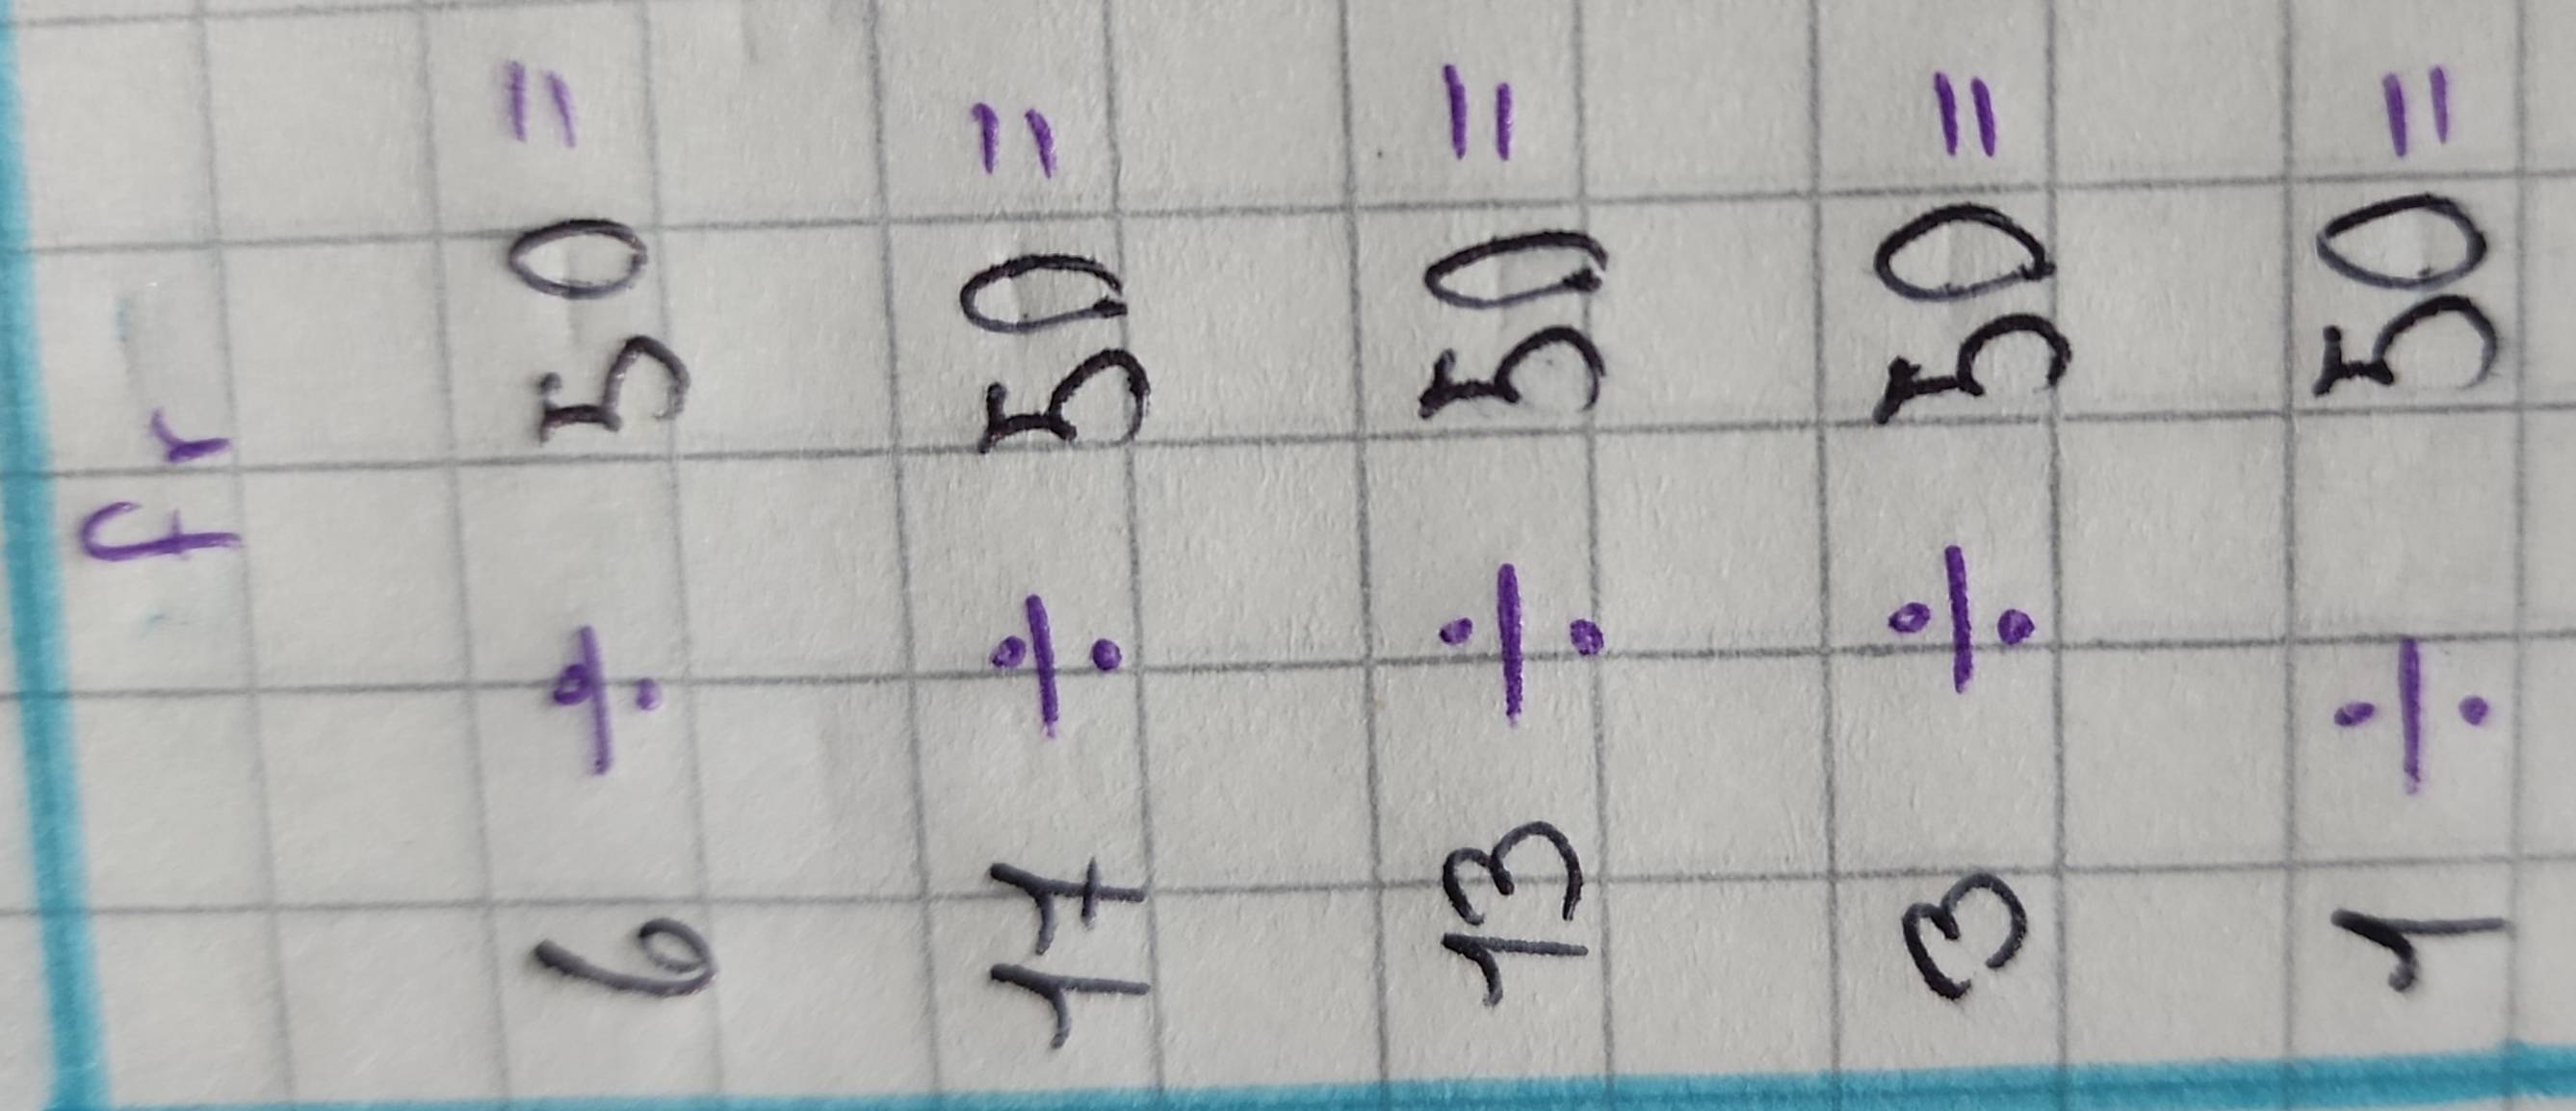 fr
6 ÷ 50 =
17 ÷ 50 =
13 ÷ 50 =
3 ÷ 50 =
1 ÷ 50 =